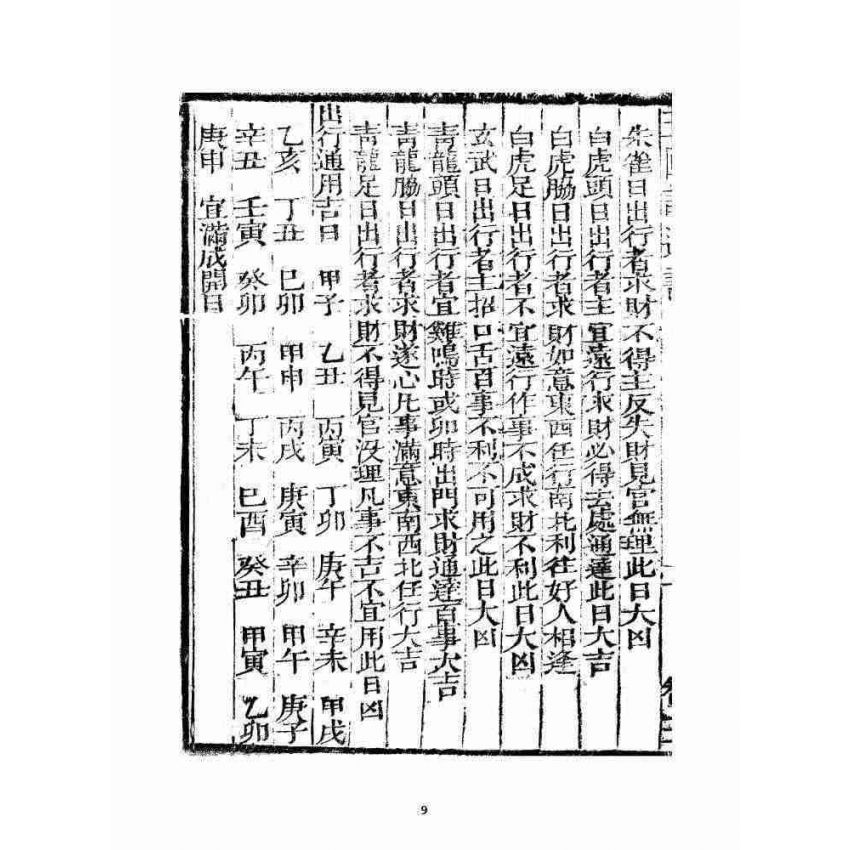 朱雀日出行者求財不得主反失財見官無理此日大凶
白虎頭日出行者主宜遠行求財必得去處通達此日大吉
白虎脇日出行者求財如意東西任行南北利往好人相逢
白虎足日出行者不宜遠行作事不成求財不利此日大凶
玄武日出行者主招口舌百事不利不可用之此日大凶
青龍頭日出行者宜雞鳴時或卯時出門求財通達百事大吉
青龍脇日出行者求財遂心凡事滿意東南西北任行大吉
青龍足日出行者求財不得見官沒理凡事不吉不宜用此日凶
出行通用吉日 甲子 乙丑 丙寅 丁卯 庚午 辛未 甲戌
乙亥 丁丑 己卯 甲申 丙戌 庚寅 辛卯 甲午 庚子
辛丑 壬寅 癸卯 丙午 丁未 己酉 癸丑 甲寅 乙卯
庚申 宜滿成開日
9